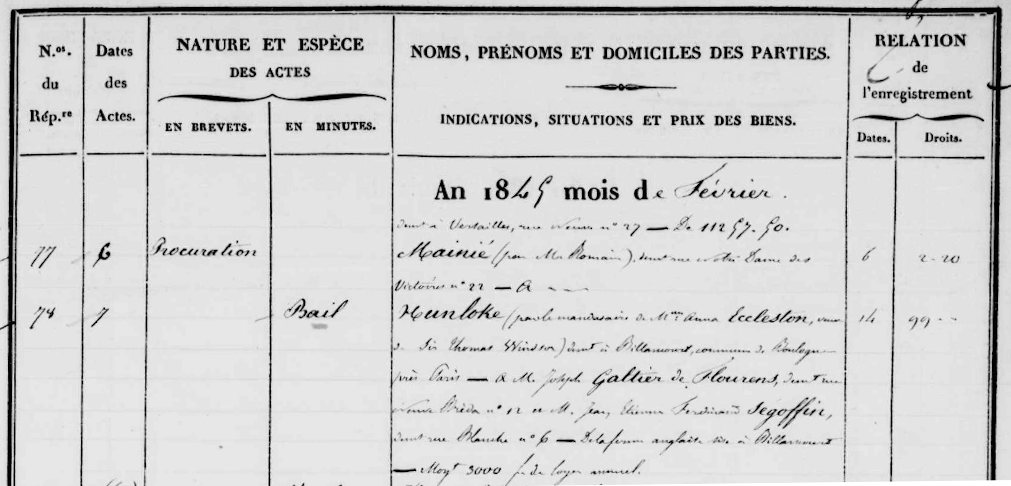 N.os. du Rép.re
Dates des Actes.
NATURE ET ESPÈCE
DES ACTES
EN BREVETS.
EN MINUTES.
NOMS, PRÉNOMS ET DOMICILES DES PARTIES.
INDICATIONS, SITUATIONS ET PRIX DES BIENS.
RELATION
de
l'enregistrement
Dates.
Droits.
An 1845 mois de Février.
demt à Versailles, rue neuve n° 27 — De 11257. 50.
77 6 Procuration Mainié (par M. Romain), demt rue Notre Dame des 6 2-20
Victoires n° 22 — A
78 7 Bail Hunloke (par le mandataire de Mme Anna Eccleston, veuve 14 99
de Sir Thomas Windsor) demt à Billancourt, commune de Boulogne
près Paris — A M. Joseph Galtier de Flourens, demt rue
Neuve Bréda n° 12 et M. Jean Etienne Ferdinand Ségoffin,
demt rue Blanche n° 6 — De la ferme anglaise sise à Billancourt
— Moyt 3000 f. de loyer annuel.